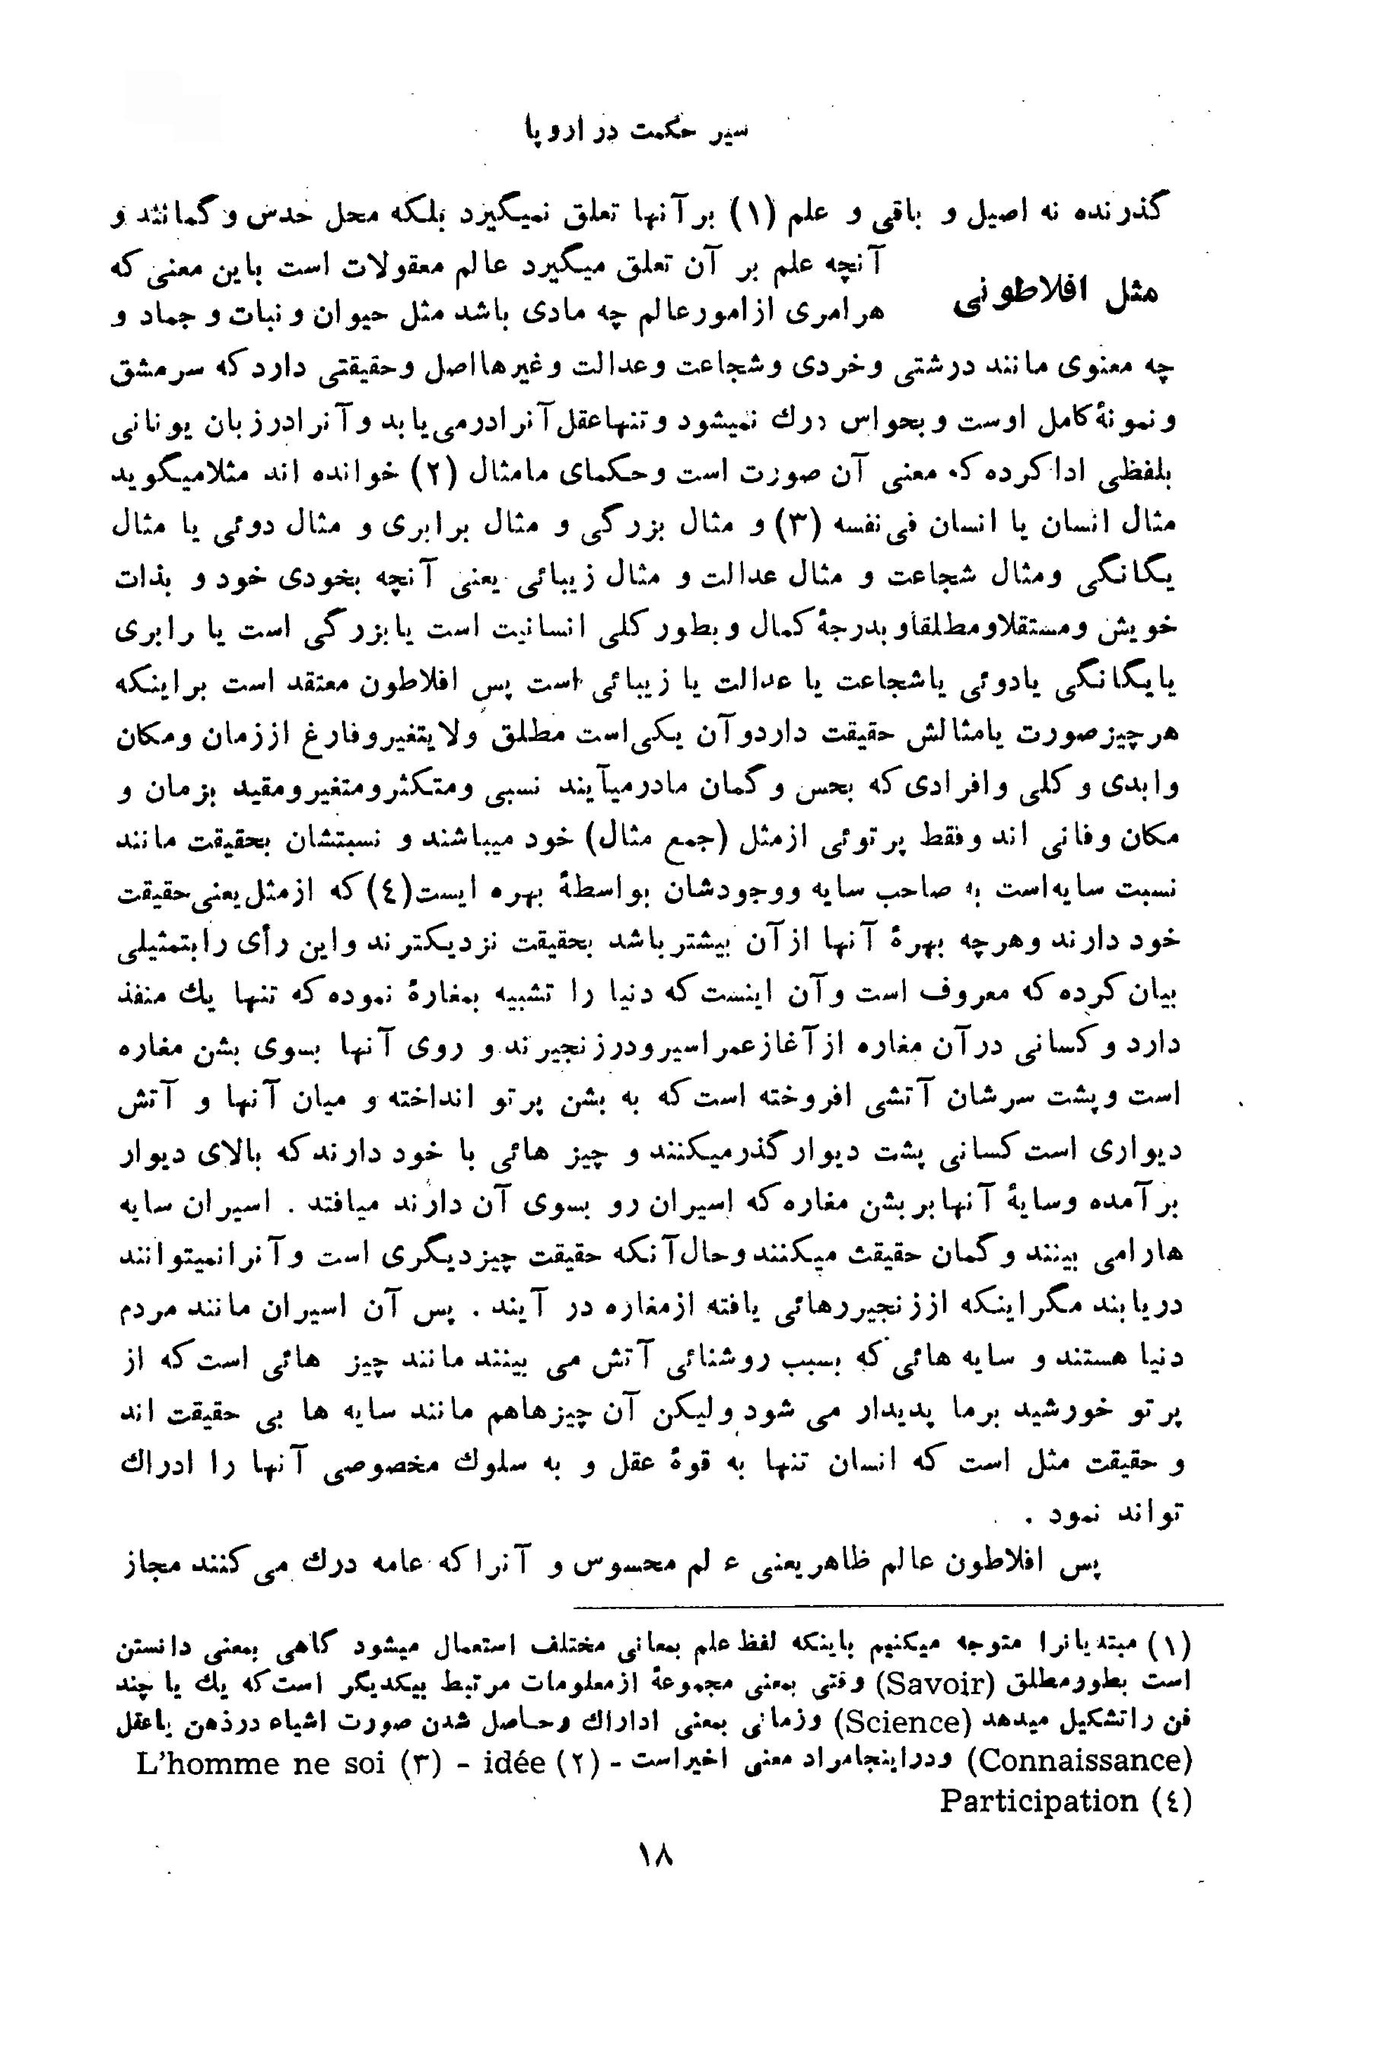 سیر حکمت در اروپا
گذرنده نه اصیل و باقی و علم (۱) بر آنها تعلق نمیگیرد بلکه محل حدس و گمانند و
آنچه علم بر آن تعلق میگیرد عالم معقولات است باین معنی که
مثل افلاطونی
هر امری از امور عالم چه مادی باشد مثل حیوان و نبات و جماد و
چه معنوی مانند درشتی و خردی و شجاعت و عدالت و غیرها اصل و حقیقتی دارد که سرمشق
و نمونهٔ کامل اوست و بحواس درك نمیشود و تنها عقل آنرا درمی‌یابد و آنرا در زبان یونانی
بلفظی ادا کرده که معنی آن صورت است و حکمای ما مثال (۲) خوانده اند مثلا میگوید
مثال انسان یا انسان فی نفسه (۳) و مثال بزرگی و مثال برابری و مثال دوئی یا مثال
یگانگی و مثال شجاعت و مثال عدالت و مثال زیبائی یعنی آنچه بخودی خود و بذات
خویش و مستقلا و مطلقا و بدرجهٔ کمال و بطور کلی انسانیت است یا بزرگی است یا رابری
یا یگانگی یا دوئی یا شجاعت یا عدالت یا زیبائی است پس افلاطون معتقد است بر اینکه
هر چیز صورت یا مثالش حقیقت دارد و آن یکی است مطلق و لایتغیر و فارغ از زمان و مکان
و ابدی و کلی و افرادی که بحس و گمان ما درمیآیند نسبی و متکثر و متغیر و مقید بزمان و
مکان و فانی اند و فقط پرتوئی از مثل (جمع مثال) خود میباشند و نسبتشان بحقیقت مانند
نسبت سایه است به صاحب سایه و وجودشان بواسطهٔ بهره ایست (٤) که از مثل یعنی حقیقت
خود دارند و هر چه بهرهٔ آنها از آن بیشتر باشد بحقیقت نزدیکترند و این رأی را بتمثیلی
بیان کرده که معروف است و آن اینست که دنیا را تشبیه بمغارهٔ نموده که تنها یك منفذ
دارد و کسانی در آن مغاره از آغاز عمر اسیر و در زنجیرند و روی آنها بسوی بشن مغاره
است و پشت سرشان آتشی افروخته است که به بشن پرتو انداخته و میان آنها و آتش
دیواری است کسانی پشت دیوار گذر میکنند و چیز هائی با خود دارند که بالای دیوار
برآمده و سایهٔ آنها بر بشن مغاره که اسیران رو بسوی آن دارند میافتد . اسیران سایه
ها را می بینند و گمان حقیقت میکنند و حال آنکه حقیقت چیز دیگری است و آنرا نمیتوانند
دریابند مگر اینکه از زنجیر رهائی یافته از مغاره در آیند . پس آن اسیران مانند مردم
دنیا هستند و سایه هائی که بسبب روشنائی آتش می بینند مانند چیز هائی است که از
پرتو خورشید برما پدیدار می شود ولیکن آن چیزها هم مانند سایه ها بی حقیقت اند
و حقیقت مثل است که انسان تنها به قوهٔ عقل و به سلوك مخصوصی آنها را ادراك
تواند نمود .
پس افلاطون عالم ظاهر یعنی ء لم محسوس و آنرا که عامه درك می کنند مجاز
(۱) مبتدیانرا متوجه میکنیم باینکه لفظ علم بمعانی مختلف استعمال میشود گاهی بمعنی دانستن
است بطور مطلق (Savoir) وقتی بمعنی مجموعهٔ از معلومات مرتبط بیکدیگر است که یك یا چند
فن را تشکیل میدهد (Science) و زمانی بمعنی اداراك و حاصل شدن صورت اشیاء در ذهن یا عقل
(Connaissance) و در اینجا مراد معنی اخیر است - (۲) idée - (۳) L'homme ne soi
(٤) Participation
۱۸